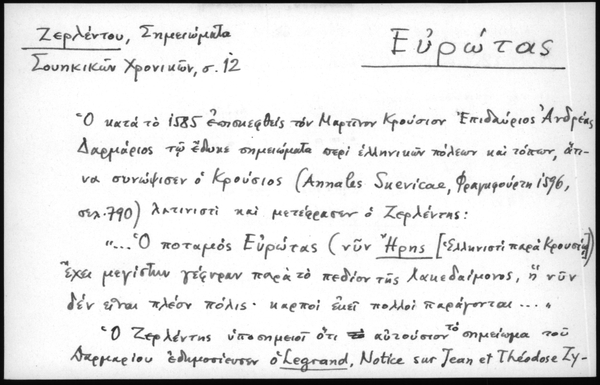 Ζερλέντου, Σημειώματα
Σουηκικῶν Χρονικῶν, σ. 12
Εὐρώτας
Ὁ κατὰ τὸ 1585 ἐπισκεφθεὶς τὸν Μαρτῖνον Κρούσιον Ἐπιδαύριος Ἀνδρέας
Δαρμάριος τῷ ἔδωκε σημειώματα περὶ ἑλληνικῶν πόλεων καὶ τόπων, ἅτι-
να συνώψισεν ὁ Κρούσιος (Annales Suevicae, Φραγκφούρτη 1596,
σελ. 790) λατινιστὶ καὶ μετέφρασεν ὁ Ζερλέντης:
"... Ὁ ποταμὸς Εὐρώτας (νῦν Ἤρης [ἑλληνιστὶ παρὰ Κρουσίῳ])
ἔχει μεγίστην γέφυραν παρὰ τὸ πεδίον τῆς Λακεδαίμονος, ἣ νῦν
δὲν εἶναι πλέον πόλις· καρποὶ ἐκεῖ πολλοὶ παράγονται ... "
Ὁ Ζερλέντης ὑποσημειοῖ ὅτι αὐτούσιον τὸ σημείωμα τοῦ
Δαρμαρίου ἐδημοσίευσεν ὁ Legrand, Notice sur Jean et Théodose Zy-